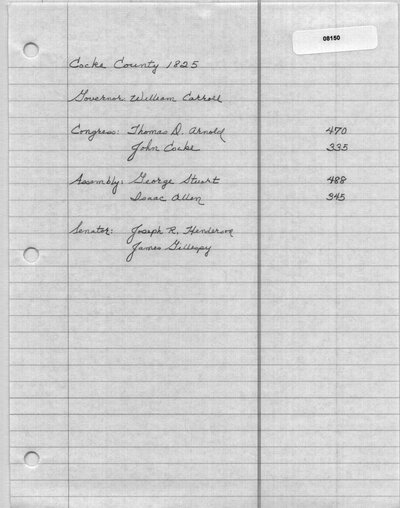 08150
Cocke County 1825
Governor: William Carroll
Congress: Thomas D. Arnold 470
John Cocke 335
Assembly: George Stuart 488
Isaac Allen 345
Senator: Joseph R. Henderson
James Gillespy